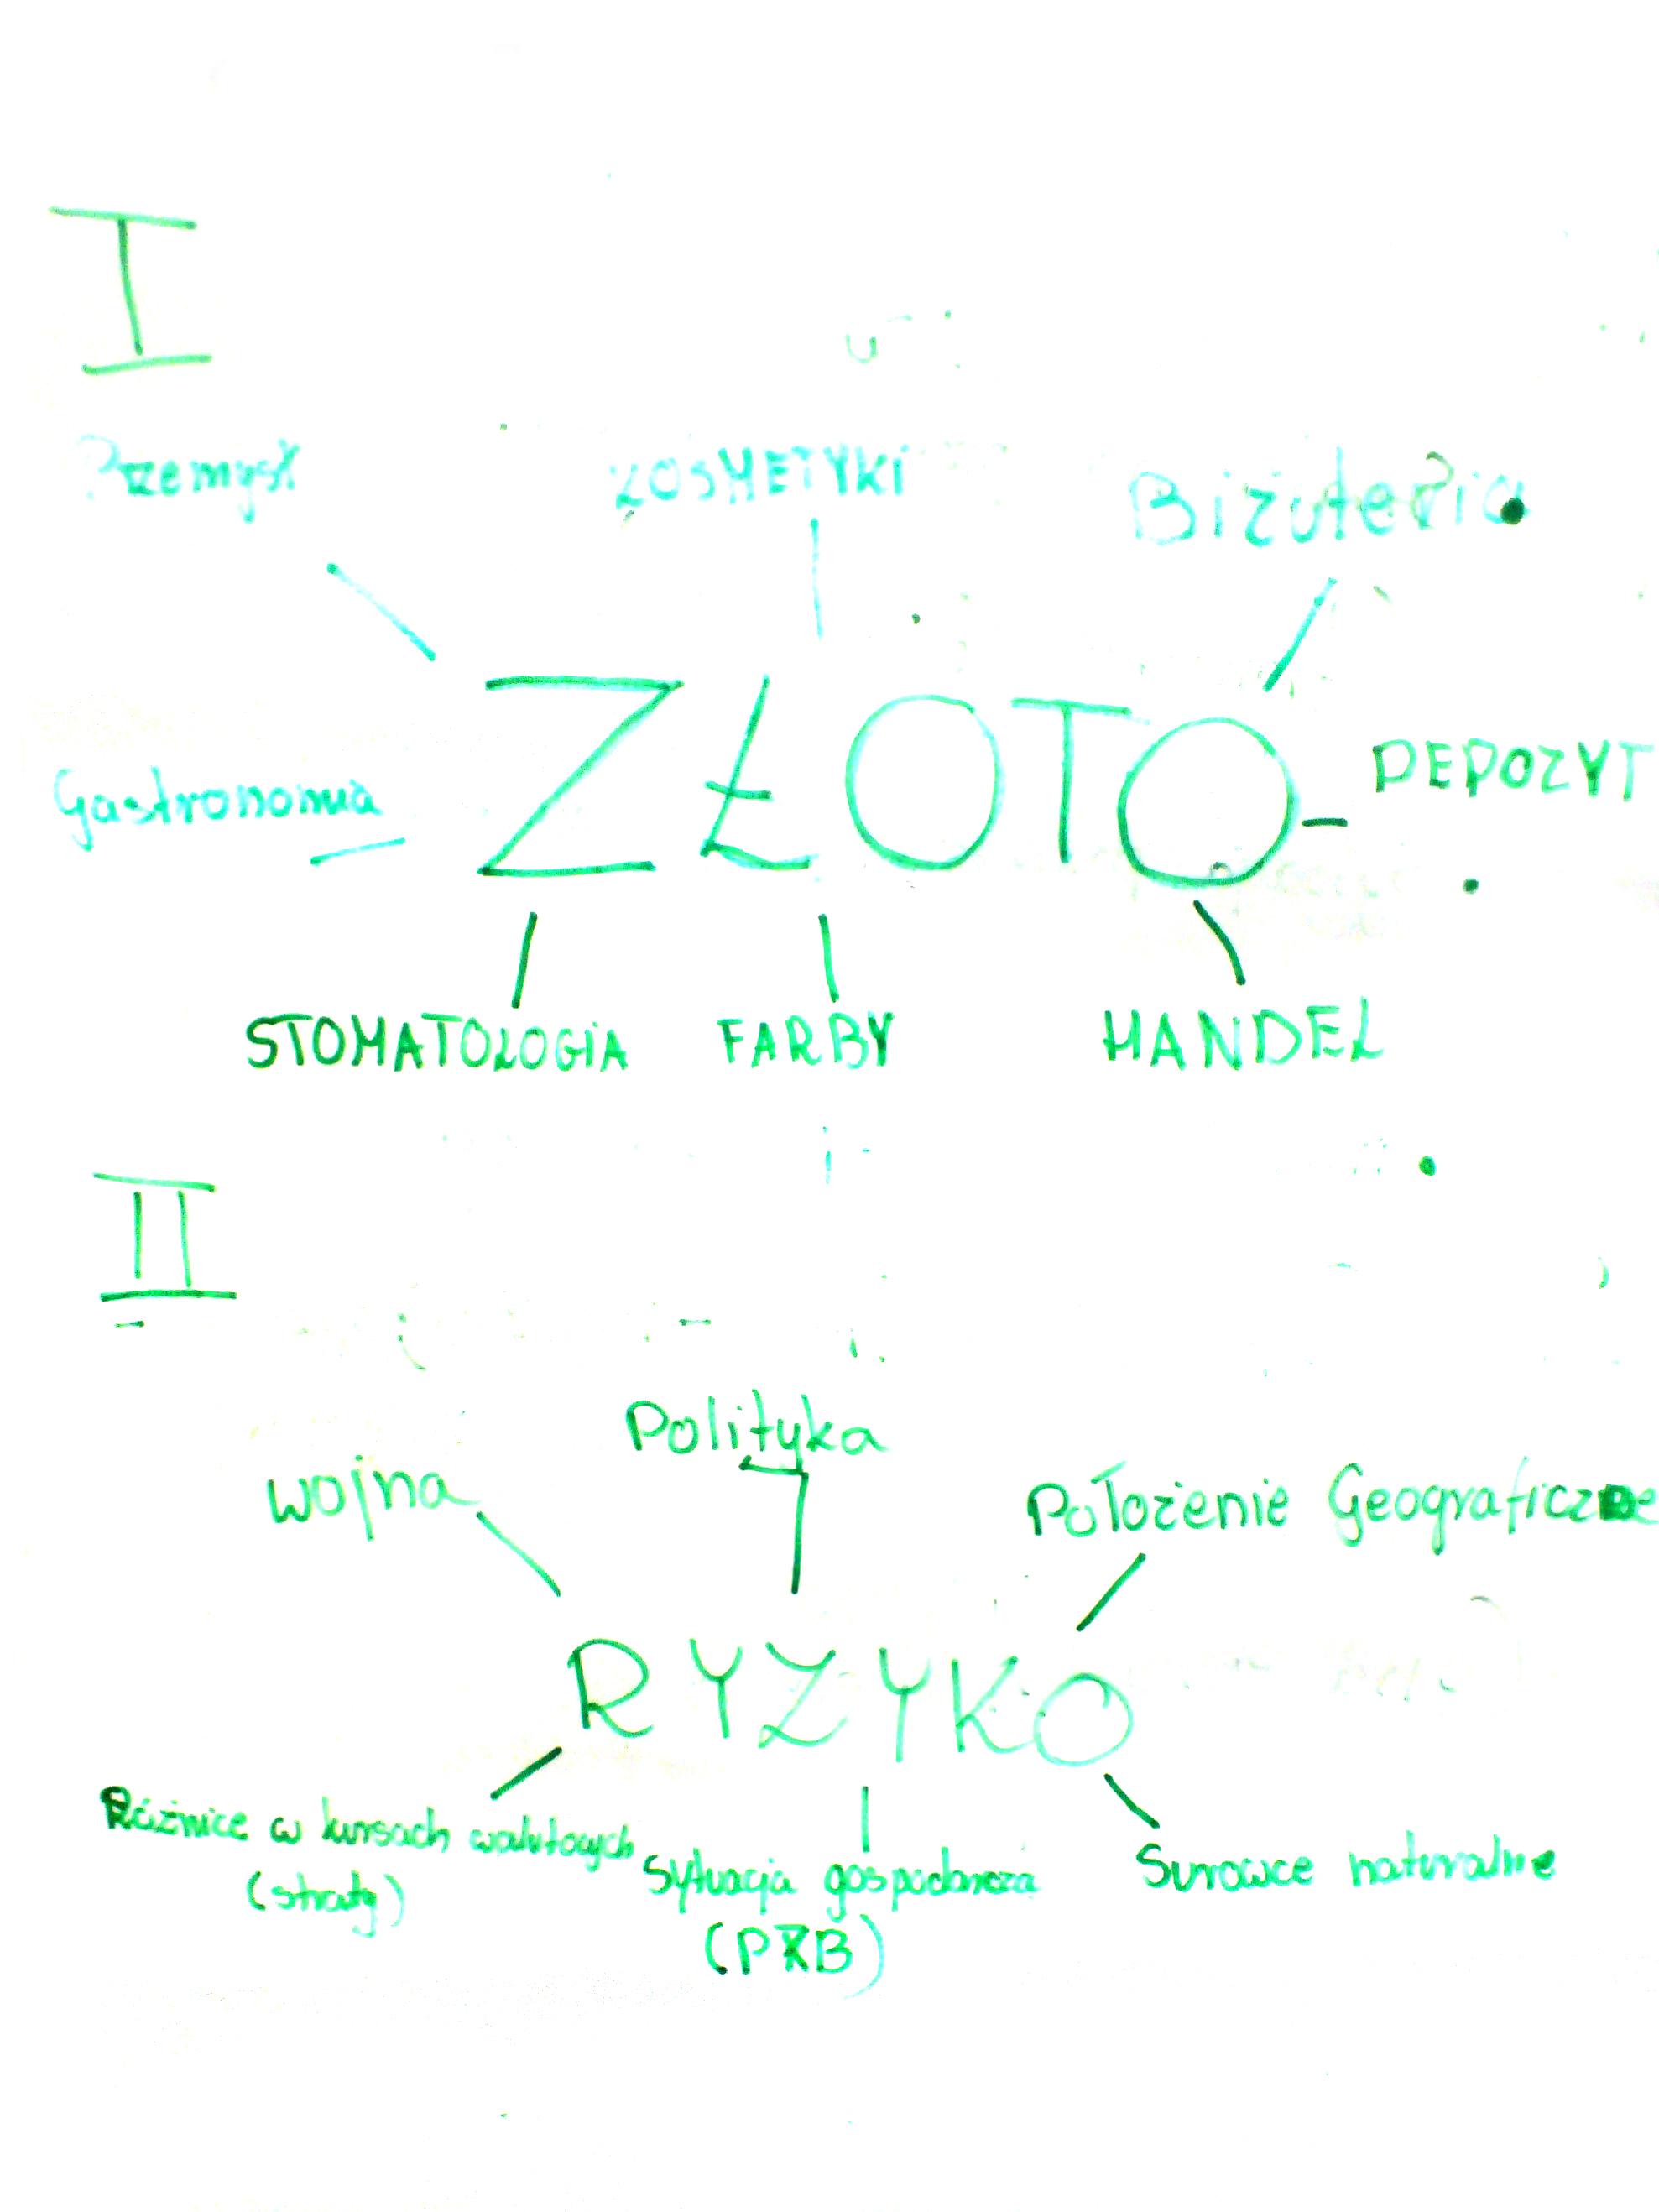 I
Przemysł KOSMETYKI Biżuteria
ZŁOTO
Gastronomia DEPOZYT
STOMATOLOGIA FARBY HANDEL
II
Polityka
wojna Położenie Geograficzne
RYZYKO
Różnice w kursach walutowych
(straty)
Sytuacja gospodarcza
(PKB)
Surowce naturalne